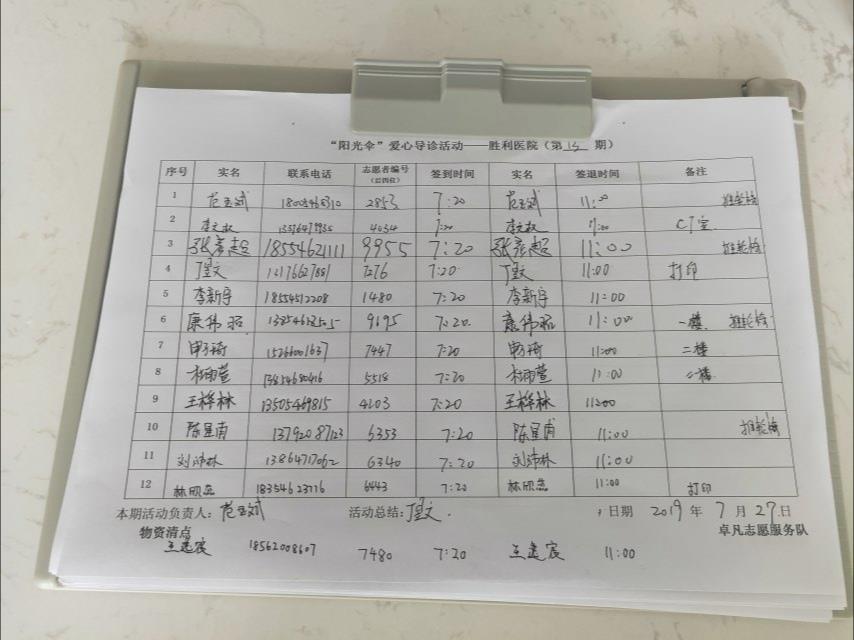 “阳光伞”爱心导诊活动——胜利医院（第 期）
序号 实名 联系电话 志愿者编号（后四位） 签到时间 实名 签退时间 备注
1 2853 7:20 11:00 推轮椅
2 李文叔 4034 7:20 李文叔 11:00 CT室
3 张彦超 18554621111 9955 7:20 张彦超 11:00 推轮椅
4 丁文 7276 7:20 丁文 11:00 打印
5 李新宇 18554512208 1480 7:20 李新宇 11:00
6 康伟昭 9695 7:20 康伟昭 11:00 一楼 推轮椅
7 15266001637 7447 7:20 11:00 二楼
8 杜雨萱 13854680416 5518 7:20 杜雨萱 11:00 二楼
9 王桦林 13505469815 4203 7:20 王桦林 11:00
10 陈星甫 13792087123 6353 7:20 陈星甫 11:00 推轮椅
11 刘沛林 13864717062 6340 7:20 刘沛林 11:00
12 18354623776 6443 7:20 11:00 打印
本期活动负责人： 活动总结： 日期 2019 年 7 月 27 日
物资清点 卓凡志愿服务队
王建宸 18562008607 7480 7:20 王建宸 11:00